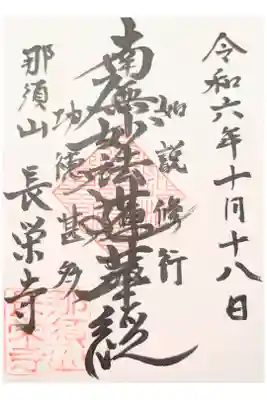 令和六年十月十八日
如説修行
南無妙法蓮華経
功徳甚多
那須山 長栄寺